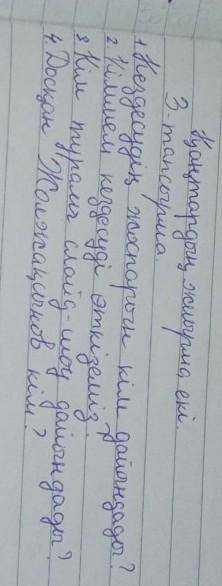 Қаңтардың жиырма екі.
3-тапсырма.
1. Кездесудің жоспарын кім дайындады?
2. Кіммен кездесуді өткіземіз.
3 Кім туралы слайд-шоу дайындады?
4. Досқан Жолжақсынов кім?